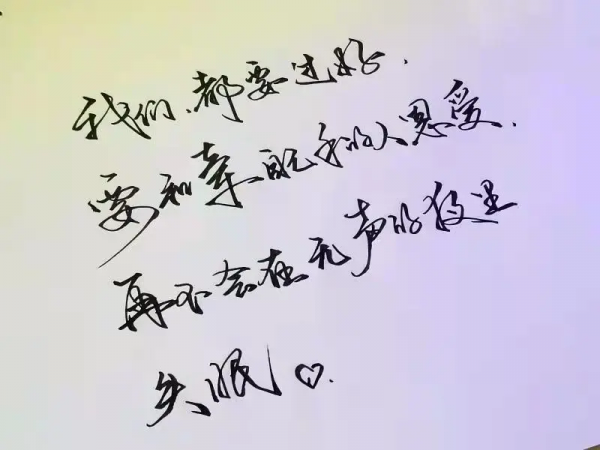 我们、都要过好.
要和亲眼看的人恩爱.
再不会在无声的夜里
失眠♡.